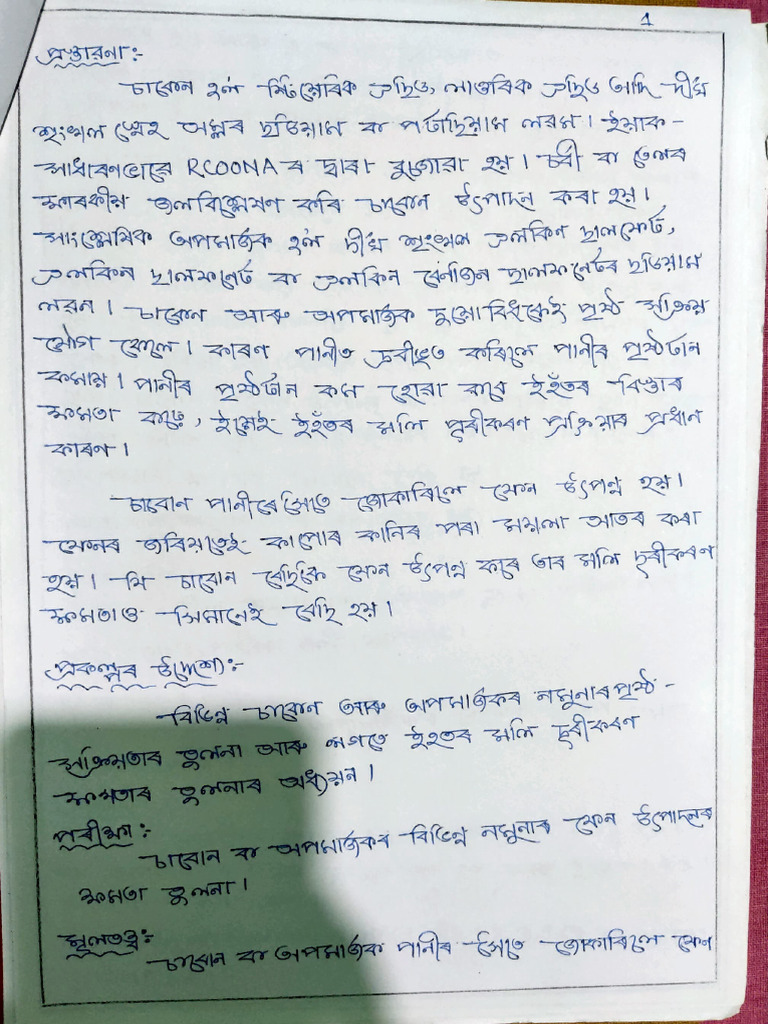 1
প্ৰস্তাৱনা :-
চাবোন হ'ল ষ্টিয়েৰিক এছিড, লাওৰিক এছিড আদি দীঘ
শৃংখল স্নেহ অম্লৰ ছডিয়াম বা পটাছিয়াম লৱন। ইয়াক -
সাধাৰণভাৱে RCOONA ৰ দ্বাৰা বুজোৱা হয়। চৰ্বী বা তেলৰ
ক্ষাৰকীয় জলবিশ্লেষণ কৰি চাবোন উৎপাদন কৰা হয়।
সাংশ্লেষিক অপমাৰ্জক হ'ল দীঘ শৃংখল এলকিন ছালফেট,
এলকিন ছালফনেট বা এলকিন বেনজিন ছালফনেটৰ ছডিয়াম
লৱন। চাবোন আৰু অপমাৰ্জক দুয়োবিধকেই পৃষ্ঠ সক্ৰিয়
যৌগ বোলে। কাৰণ পানীত দ্ৰবীভূত কৰিলে পানীৰ পৃষ্ঠটান
কমায়। পানীৰ পৃষ্ঠটান কম হোৱা বাবে ইহঁতৰ বিস্তাৰ
ক্ষমতা বাঢ়ে, ইয়েই ইহঁতৰ মলি দূৰীকৰণ প্ৰক্ৰিয়াৰ প্ৰধান
কাৰণ।
চাবোন পানীৰেসৈতে জোকাৰিলে ফেন উৎপন্ন হয়।
ফেনৰ জৰিয়তেই কাপোৰ কানিৰ পৰা ময়লা আতৰ কৰা
হয়। যি চাবোন বেছিকৈ ফেন উৎপন্ন কৰে তাৰ মলি দূৰীকৰণ
ক্ষমতাও সিমানেই বেছি হয়।
প্ৰকল্পৰ উদ্দেশ্য :-
বিভিন্ন চাবোন আৰু অপমাৰ্জকৰ নমুনাৰ পৃষ্ঠ -
সক্ৰিয়তাৰ তুলনা আৰু লগতে ইহঁতৰ মলি দূৰীকৰণ
ক্ষমতাৰ তুলনাৰ অধ্যয়ন।
পৰীক্ষা :-
চাবোন বা অপমাৰ্জকৰ বিভিন্ন নমুনাৰ ফেন উৎপাদনৰ
ক্ষমতা তুলনা।
মূলতত্ত্ব :-
চাবোন বা অপমাৰ্জক পানীৰ সৈতে জোকাৰিলে ফেন